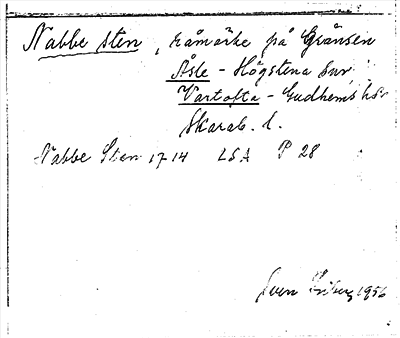 Nabbe sten, råmärke på Gränsen
Åsle - Högstena snr
Vartofta - Gudhems hdr
Skarab. l.
Nabbe Sten 1714 LSA P 28
Sven 1956